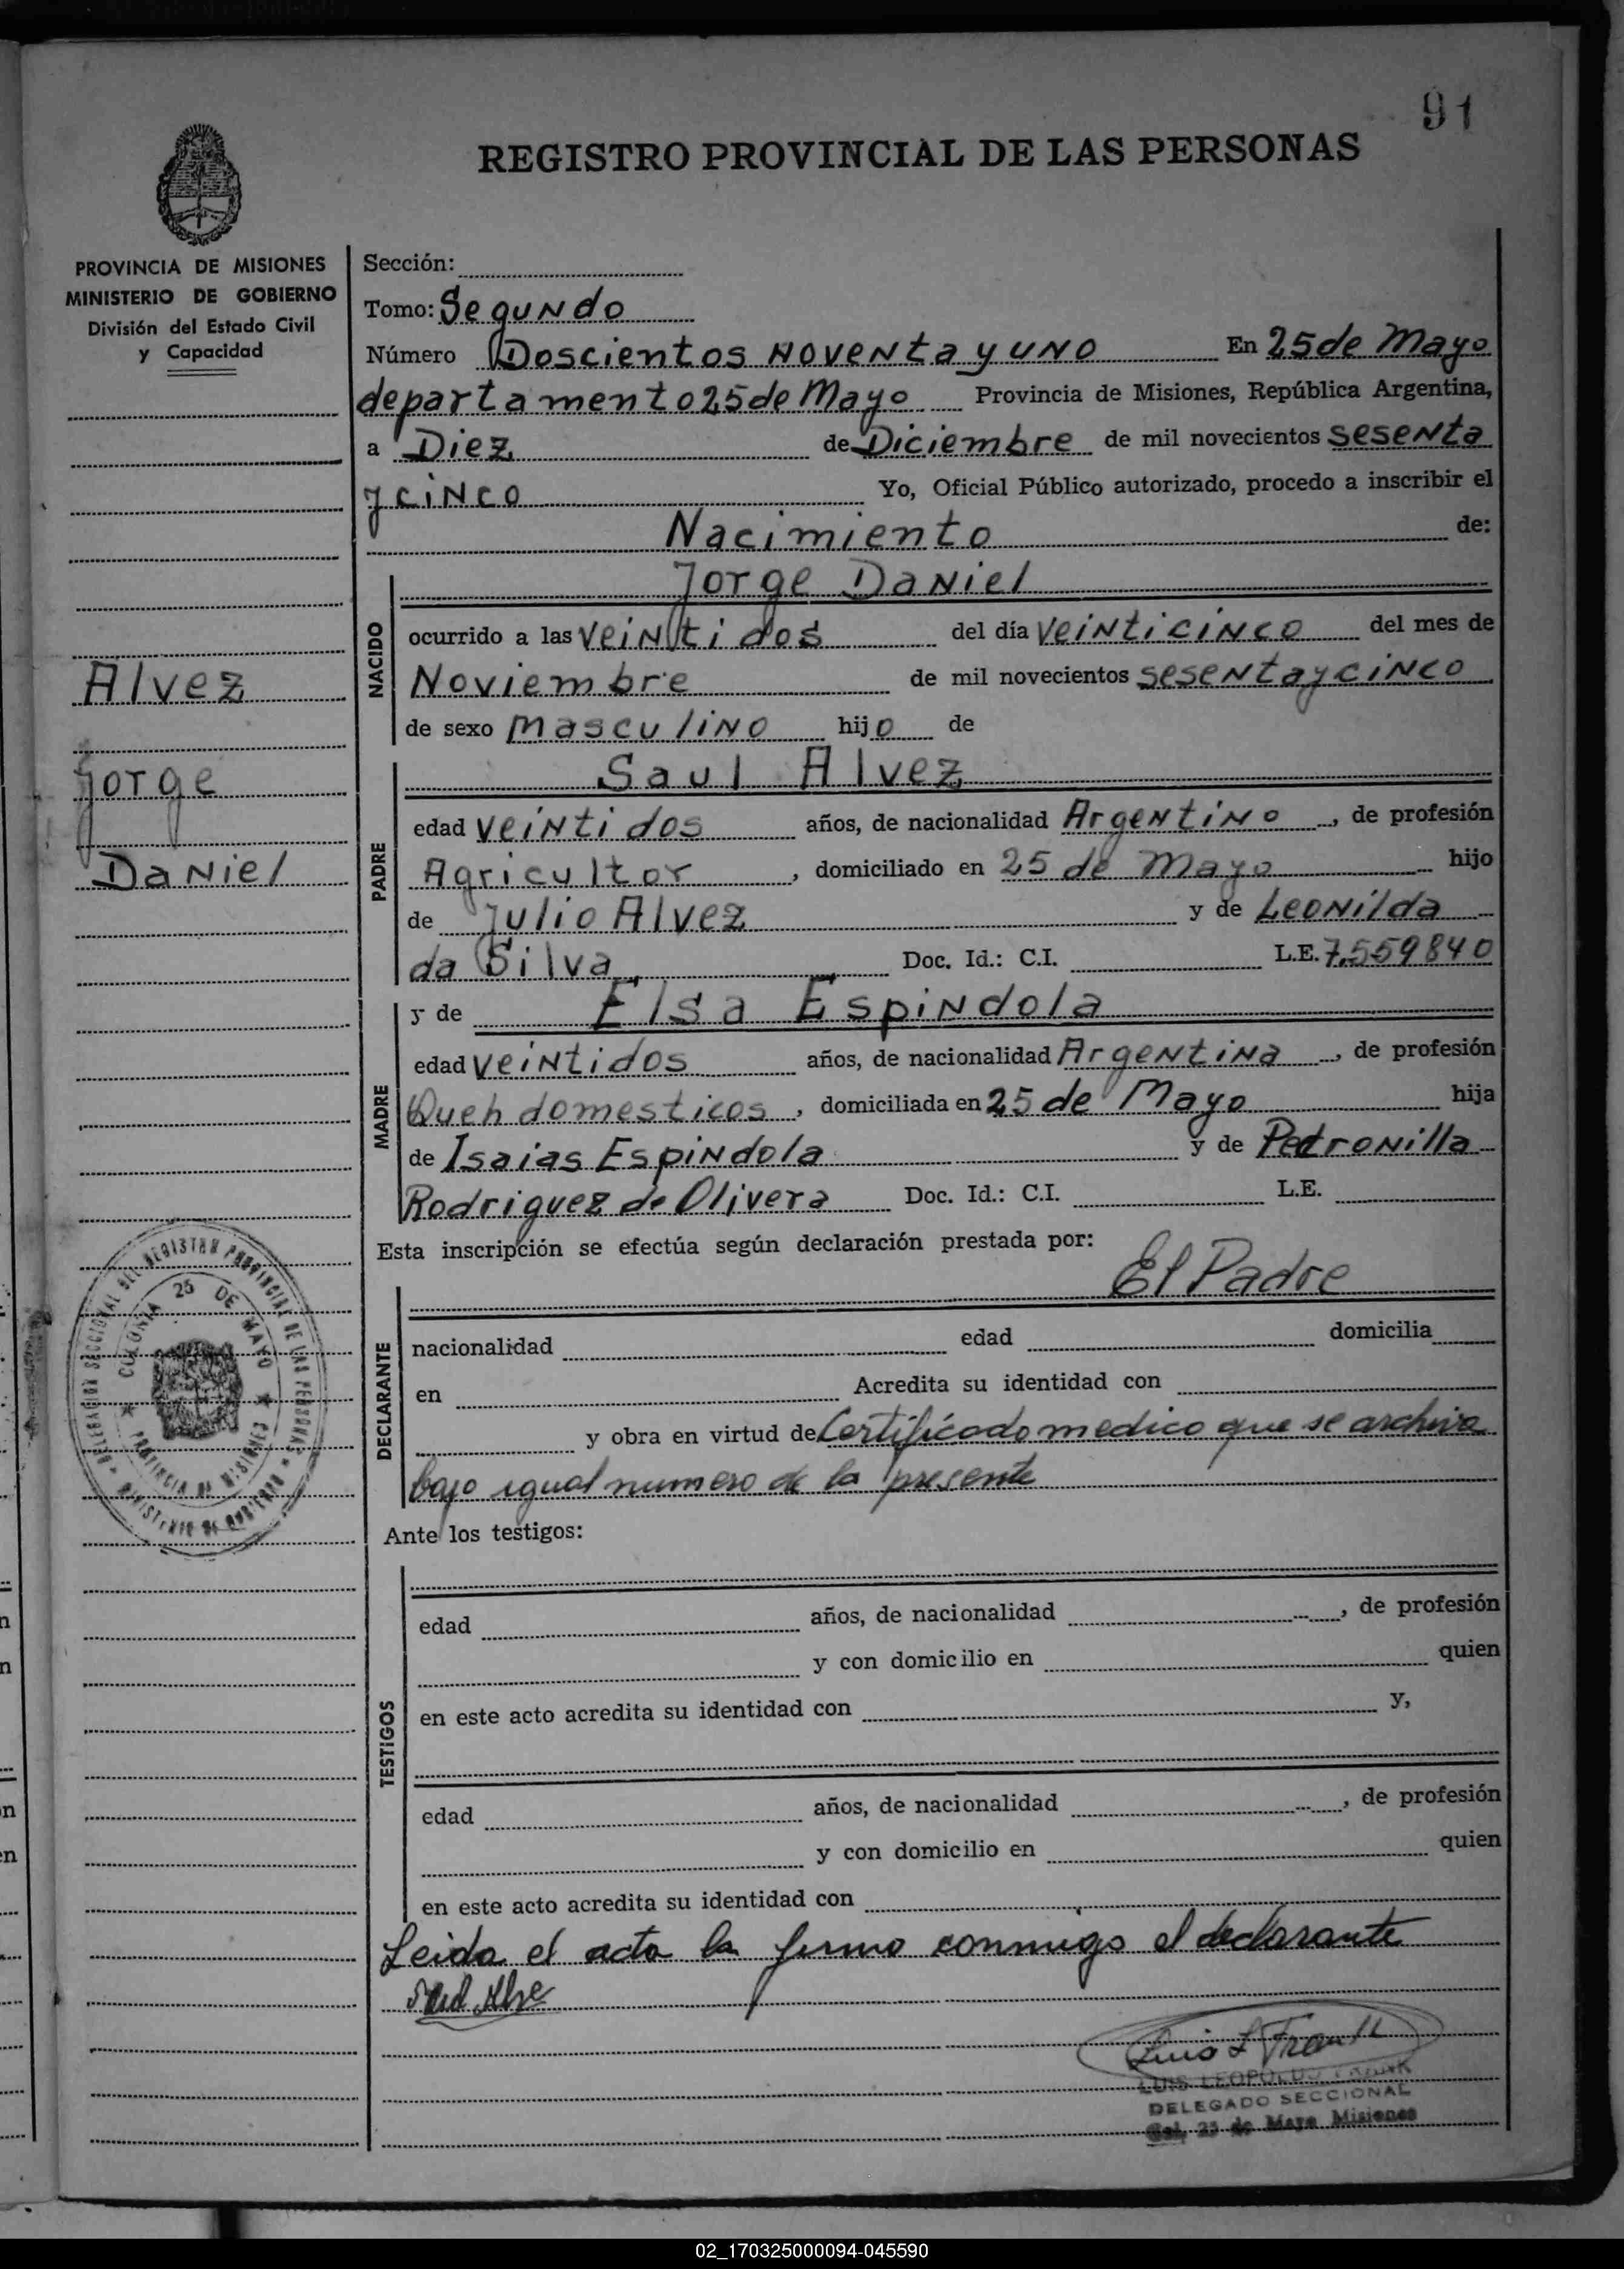 91
REGISTRO PROVINCIAL DE LAS PERSONAS
PROVINCIA DE MISIONES
MINISTERIO DE GOBIERNO
División del Estado Civil
y Capacidad
Alvez
Jorge
Daniel
DELEGACION SECCIONAL DEL REGISTRO PROVINCIAL DE LAS PERSONAS
MINISTERIO DE GOBIERNO
COLONIA 25 DE MAYO
PROVINCIA DE MISIONES
Sección:
Tomo: Segundo
Número Doscientos noventa y uno En 25 de Mayo
departamento 25 de Mayo Provincia de Misiones, República Argentina,
a Diez de Diciembre de mil novecientos sesenta
y cinco Yo, Oficial Público autorizado, procedo a inscribir el
Nacimiento de:
Jorge Daniel
NACIDO
ocurrido a las veinti dos del día veinticinco del mes de
Noviembre de mil novecientos sesenta y cinco
de sexo masculino hijo de
Saul Alvez
PADRE
edad veinti dos años, de nacionalidad Argentino, de profesión
Agricultor, domiciliado en 25 de Mayo hijo
de Julio Alvez y de Leonilda
da Silva Doc. Id.: C.I. L.E. 7.559840
y de Elsa Espindola
MADRE
edad veintidos años, de nacionalidad Argentina, de profesión
Queh domesticos, domiciliada en 25 de Mayo hija
de Isaias Espindola y de Petronilla
Rodriguez de Olivera Doc. Id.: C.I. L.E.
Esta inscripción se efectúa según declaración prestada por:
El Padre
DECLARANTE
nacionalidad edad domicilia
en Acredita su identidad con
y obra en virtud de Certificado medico que se archiva
bajo igual numero de la presente
Ante los testigos:
TESTIGOS
edad años, de nacionalidad , de profesión
y con domicilio en quien
en este acto acredita su identidad con y,
edad años, de nacionalidad , de profesión
y con domicilio en quien
en este acto acredita su identidad con
Leida el acta la firmo conmigo el declarante
Saul Alve
Luis L Frank
LUIS LEOPOLDO FRANK
DELEGADO SECCIONAL
Col. 25 de Mayo Misiones
02_170325000094-045590